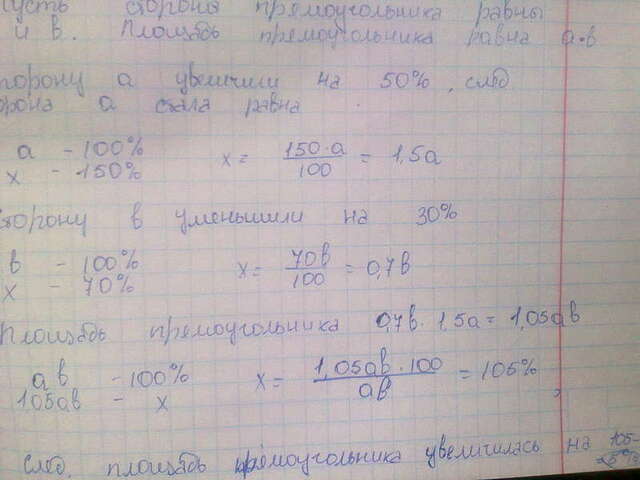 усть стороны прямоугольника равны
и в. Площадь прямоугольника равна а·в
торону а увеличили на 50%, след
орона а стала равна
а - 100%
х - 150%
х = 150·а / 100 = 1,5а
сторону в уменьшили на 30%
в - 100%
х - 70%
х = 70в / 100 = 0,7в
Площадь прямоугольника 0,7в · 1,5а = 1,05ав
ав - 100%
105ав - х
х = 1,05ав · 100 / ав = 105%
След. площадь прямоугольника увеличилась на 105-